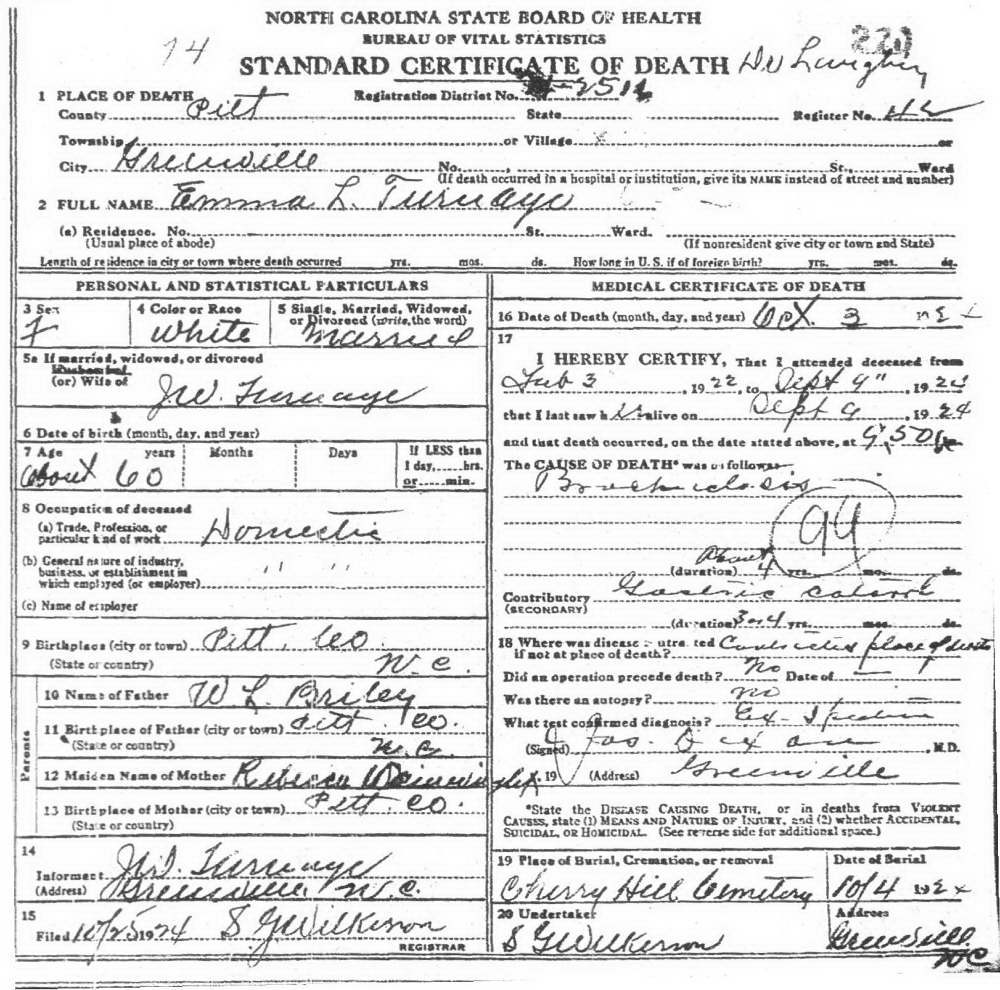 NORTH CAROLINA STATE BOARD OF HEALTH
BUREAU OF VITAL STATISTICS
74
STANDARD CERTIFICATE OF DEATH
1 PLACE OF DEATH Registration District No. 2516
County Pitt State Register No. 42
Township or Village x or
City Greenville No. St., Ward
(If death occurred in a hospital or institution, give its NAME instead of street and number)
2 FULL NAME Emma L. Turnage
(a) Residence. No. St. Ward.
(Usual place of abode) (If nonresident give city or town and State)
Length of residence in city or town where death occurred yrs. mos. ds. How long in U. S. if of foreign birth? yrs. mos. ds.
PERSONAL AND STATISTICAL PARTICULARS
3 Sex 4 Color or Race 5 Single, Married, Widowed, or Divorced (write the word)
F White Married
5a If married, widowed, or divorced
Husband of
(or) Wife of J.W. Turnage
6 Date of birth (month, day, and year)
7 Age years Months Days If LESS than 1 day, hrs. or min.
About 60
8 Occupation of deceased
(a) Trade, Profession, or particular kind of work Domestic
(b) General nature of industry, business, or establishment in which employed (or employer) " "
(c) Name of employer
9 Birthplace (city or town) Pitt. Co
(State or country) N.C.
Parents
10 Name of Father W L Briley
11 Birthplace of Father (city or town) Pitt Co.
(State or country) N.C.
12 Maiden Name of Mother Rebecca
13 Birthplace of Mother (city or town) Pitt Co.
(State or country)
14
Informant J.W. Turnage
(Address) Greenville N.C.
15
Filed 10/25 1924 S. G. Wilkerson
REGISTRAR
MEDICAL CERTIFICATE OF DEATH
16 Date of Death (month, day, and year) Oct. 3 192
17
I HEREBY CERTIFY, That I attended deceased from
Feb 3, 1922, to Sept 9", 1924
that I last saw h er alive on Sept 9, 1924
and that death occurred, on the date stated above, at 9,50
The CAUSE OF DEATH* was as follows:
99
About
(duration) 4 yrs. mos. ds.
Contributory Gastric catarrh
(SECONDARY)
(duration) 3 or 4 yrs. mos. ds.
18 Where was disease contracted Contracted place of death
if not at place of death?
Did an operation precede death? No Date of
Was there an autopsy? no
What test confirmed diagnosis?
(Signed) Jos. Dixon, M.D.
, 19 (Address) Greenville
*State the DISEASE CAUSING DEATH, or in deaths from VIOLENT
CAUSES, state (1) MEANS AND NATURE OF INJURY, and (2) whether ACCIDENTAL,
SUICIDAL, OR HOMICIDAL. (See reverse side for additional space.)
19 Place of Burial, Cremation, or removal Date of Burial
Cherry Hill Cemetery 10/4 192
20 Undertaker Address
S G Wilkerson Greenville
NC